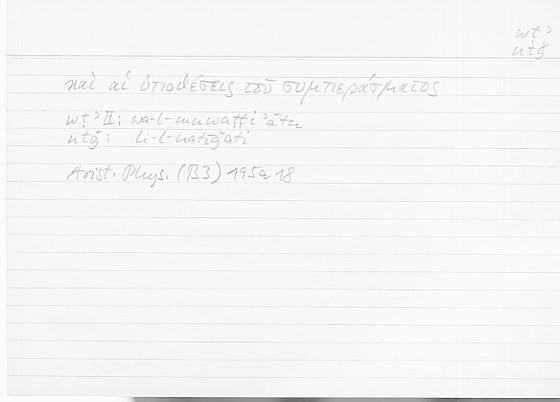 wṭʾ
ntǧ
καὶ αἱ ὑποθέσεις τοῦ συμπεράσματος
wṭʾ II: wa-l-muwaṭṭiʾātu
ntǧ: li-l-natīǧati
Arist. Phys. (B3) 195a18